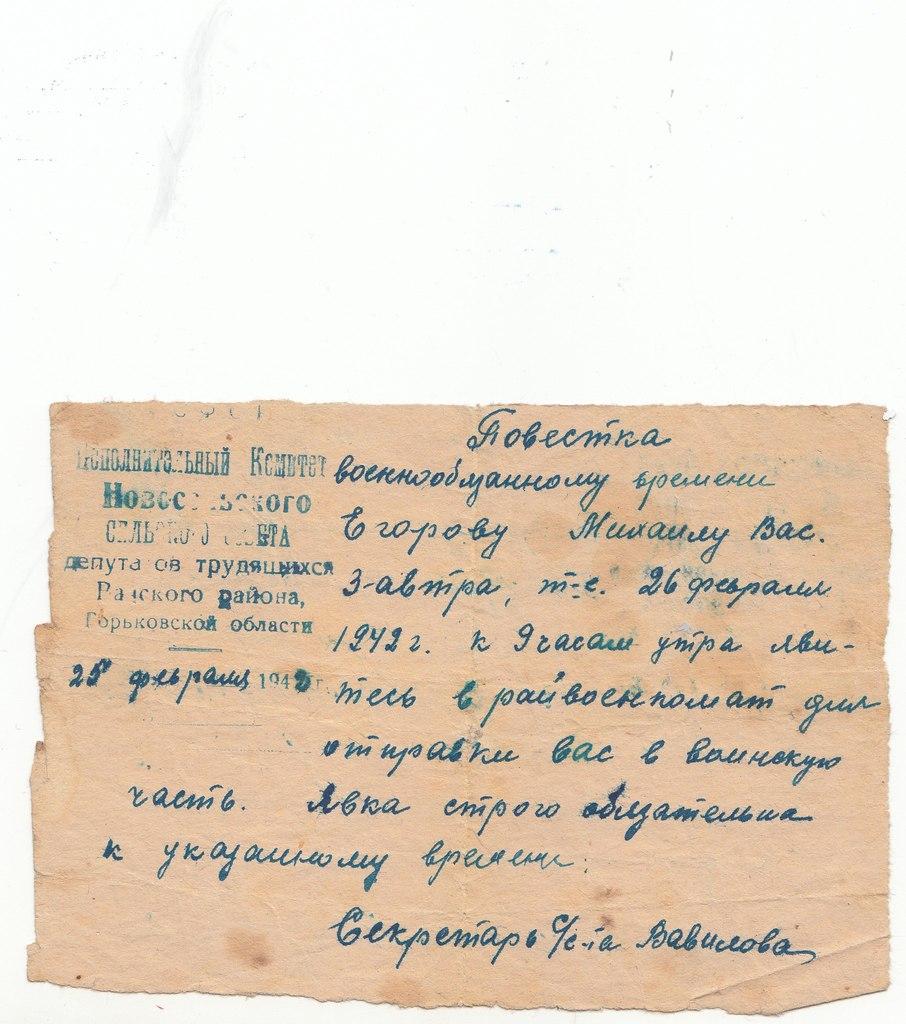 Исполнительный Комитет
Новосельского
СЕЛЬСКОГО СОВЕТА
депутатов трудящихся
района,
Горьковской области
25 февраля 1942 г.
Повестка
военнообязанному времени
Егорову Михаилу Вас.
З-автра, т-е. 26 февраля
1942 г. к 9 часам утра яви-
тесь в райвоенкомат для
отправки вас в воинскую
часть. Явка строго обязательна
к указанному времени.
Секретарь с/с-та Вавилова